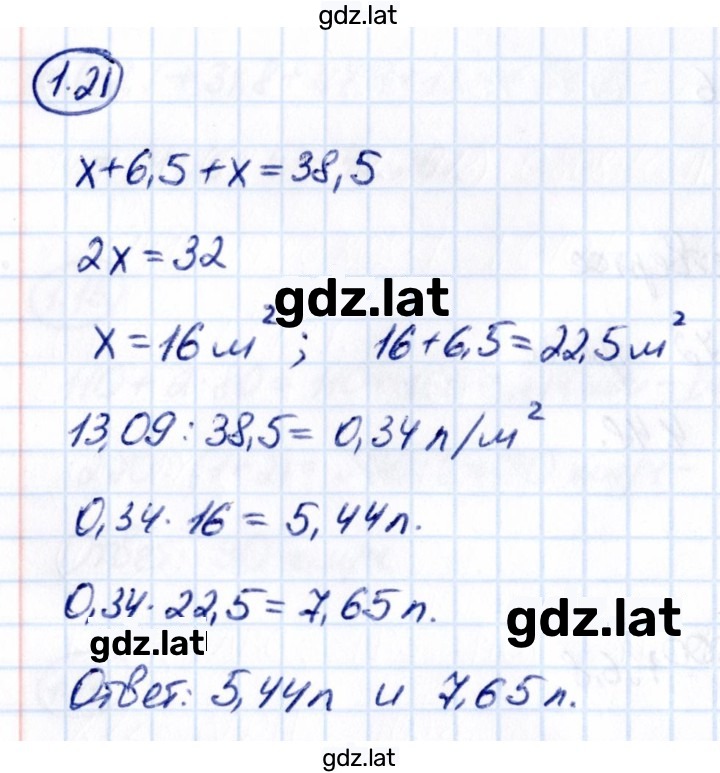 gdz.lat
1.21
x+6,5+x=38,5
2x=32
gdz.lat
x=16м²; 16+6,5=22,5м²
13,09:38,5=0,34л/м²
0,34·16=5,44л.
0,34·22,5=7,65л.
gdz.lat
gdz.lat
Ответ: 5,44л и 7,65л.
gdz.lat